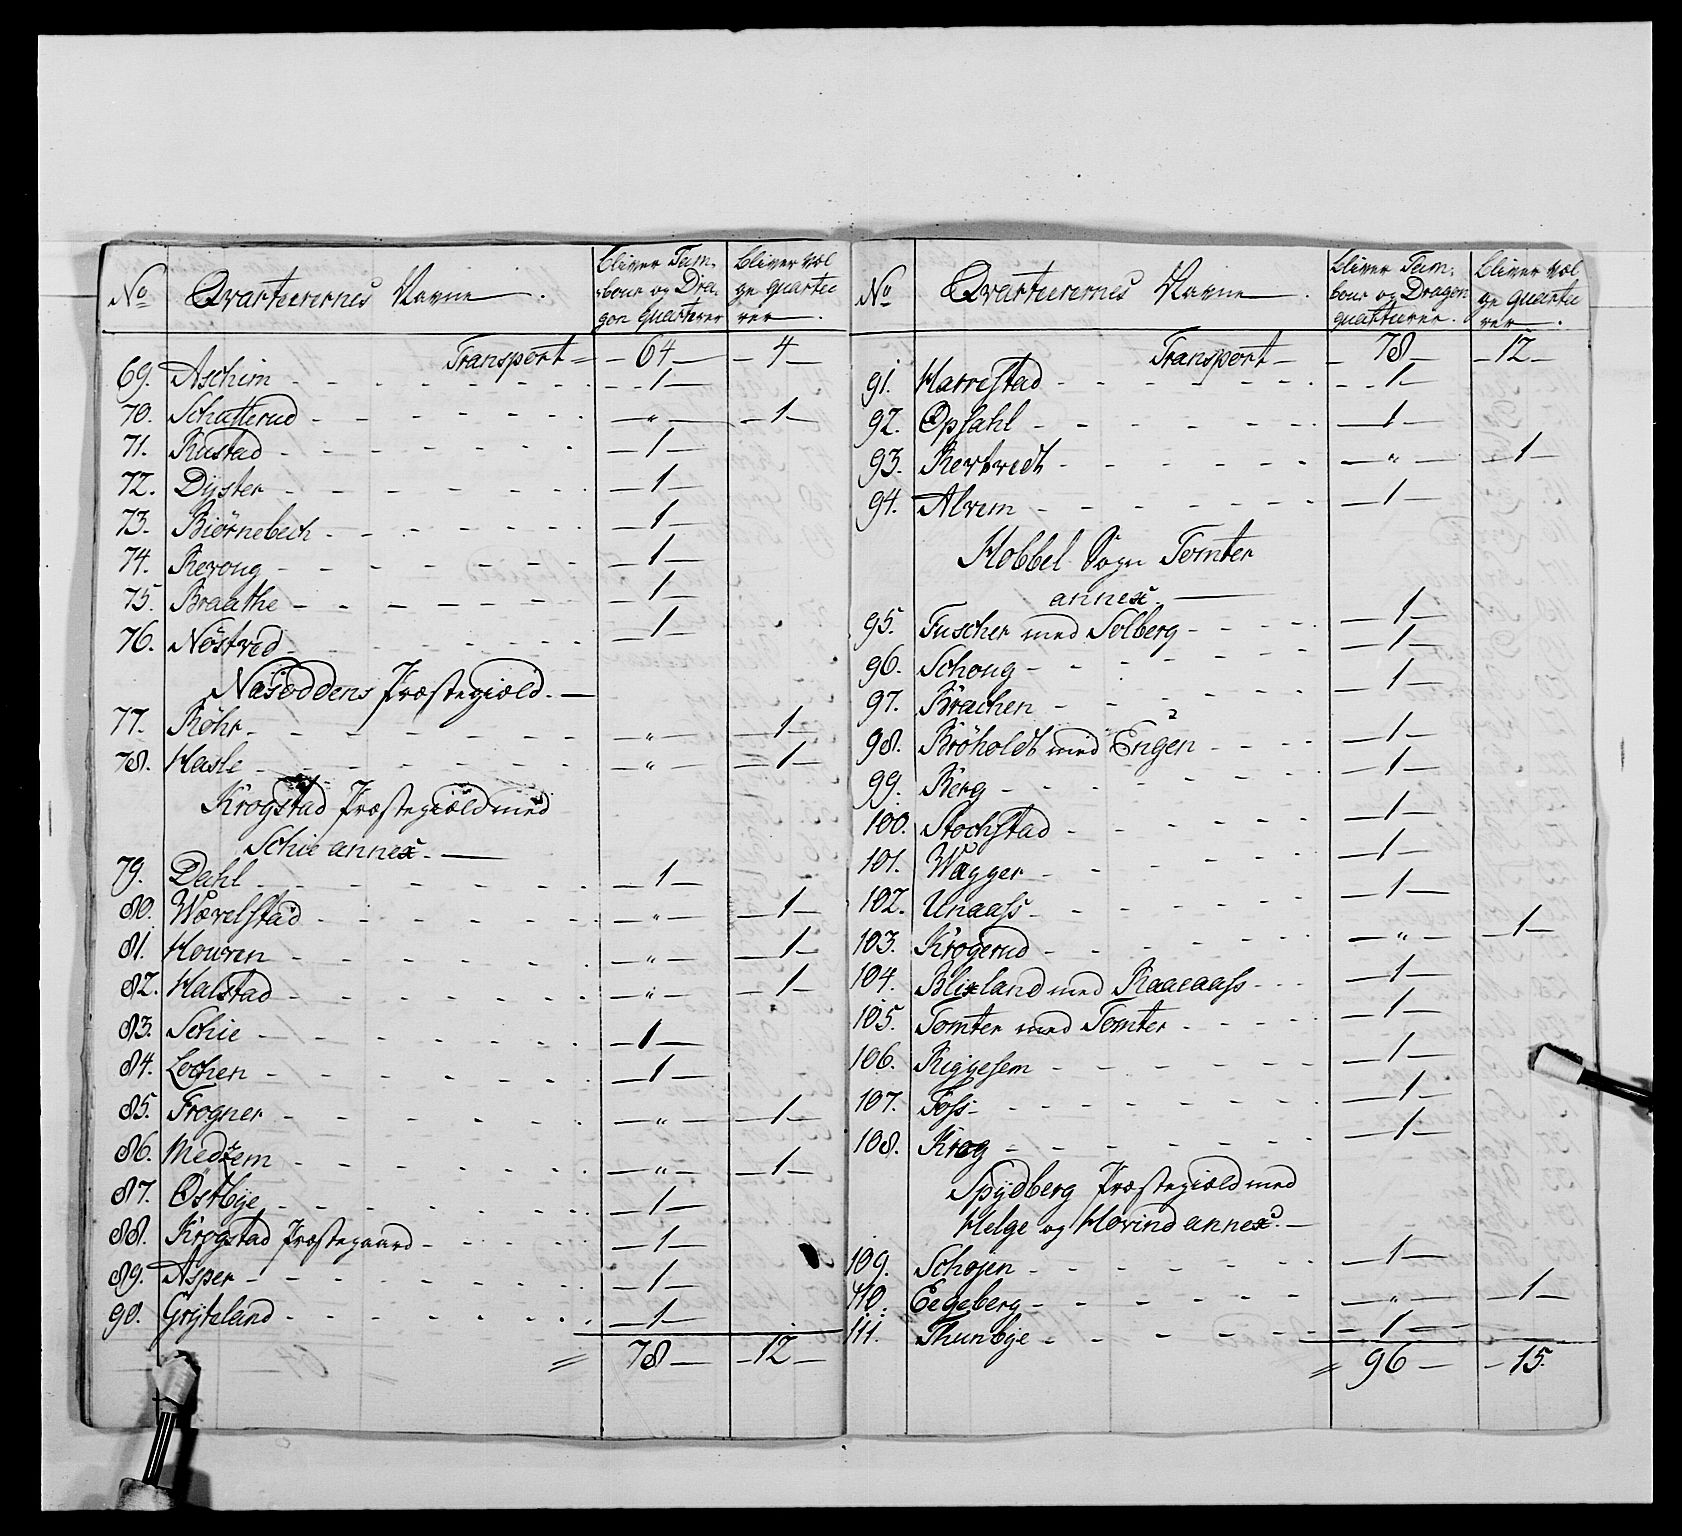 No Qvarteerernes Navne. bliver Tam-
bour og Dra-
gon quarterer bliver vol-
ge quartee
rer.
Transport = 64 4
69. Aschim 1
70. Schatterud " 1
71. Rustad 1
72. Dyster 1
73. Biörnebech 1
74. Revoug 1
75. Braathe 1
76. Nöstved 1
Nasoddens Præstegiæld.
77. Röhr " 1
78. Hasle " 1
Krogstad Præstegiæld med
Schie annex.
79. Dahl 1
80. Wævelstad " 1
81. Houven " 1
82. Halstad " 1
83. Schie 1
84. Lochen 1
85. Frogner " 1
86. Medzem " 1
87. Østbye 1
88. Krogstad Præstegaard 1
89. Asper 1
90. Grÿteland 1
= 78 12
No Qvarteerernes Navne. bliver Tam-
bour og Dragon
quarteerer. bliver vol
ge quartee
rer.
Transport 78 12
91. Harrestad 1
92. Opsahl 1
93. Kertvedt " 1
94. Alvim 1
Hobbel Sogn Tomter
annex.
95. Fuscher med Solberg 1
96. Schoug 1
97. Brachen 1
98. Bröholdt med Engen 1
99. Berg 1
100. Stochstad 1
101. Wagger 1
102. Unaass 1
103. Krogerud " 1
104. Blixland med Raaeaass 1
105. Tomter med Tomter 1
106. Riggesem 1
107. Foss 1
108. Krog 1
Spÿdberg Præstegiæld med
Helge og Hovind annex.
109. Schojen 1
110. Eegeberg " 1
111. Thunbye 1
= 96 15.